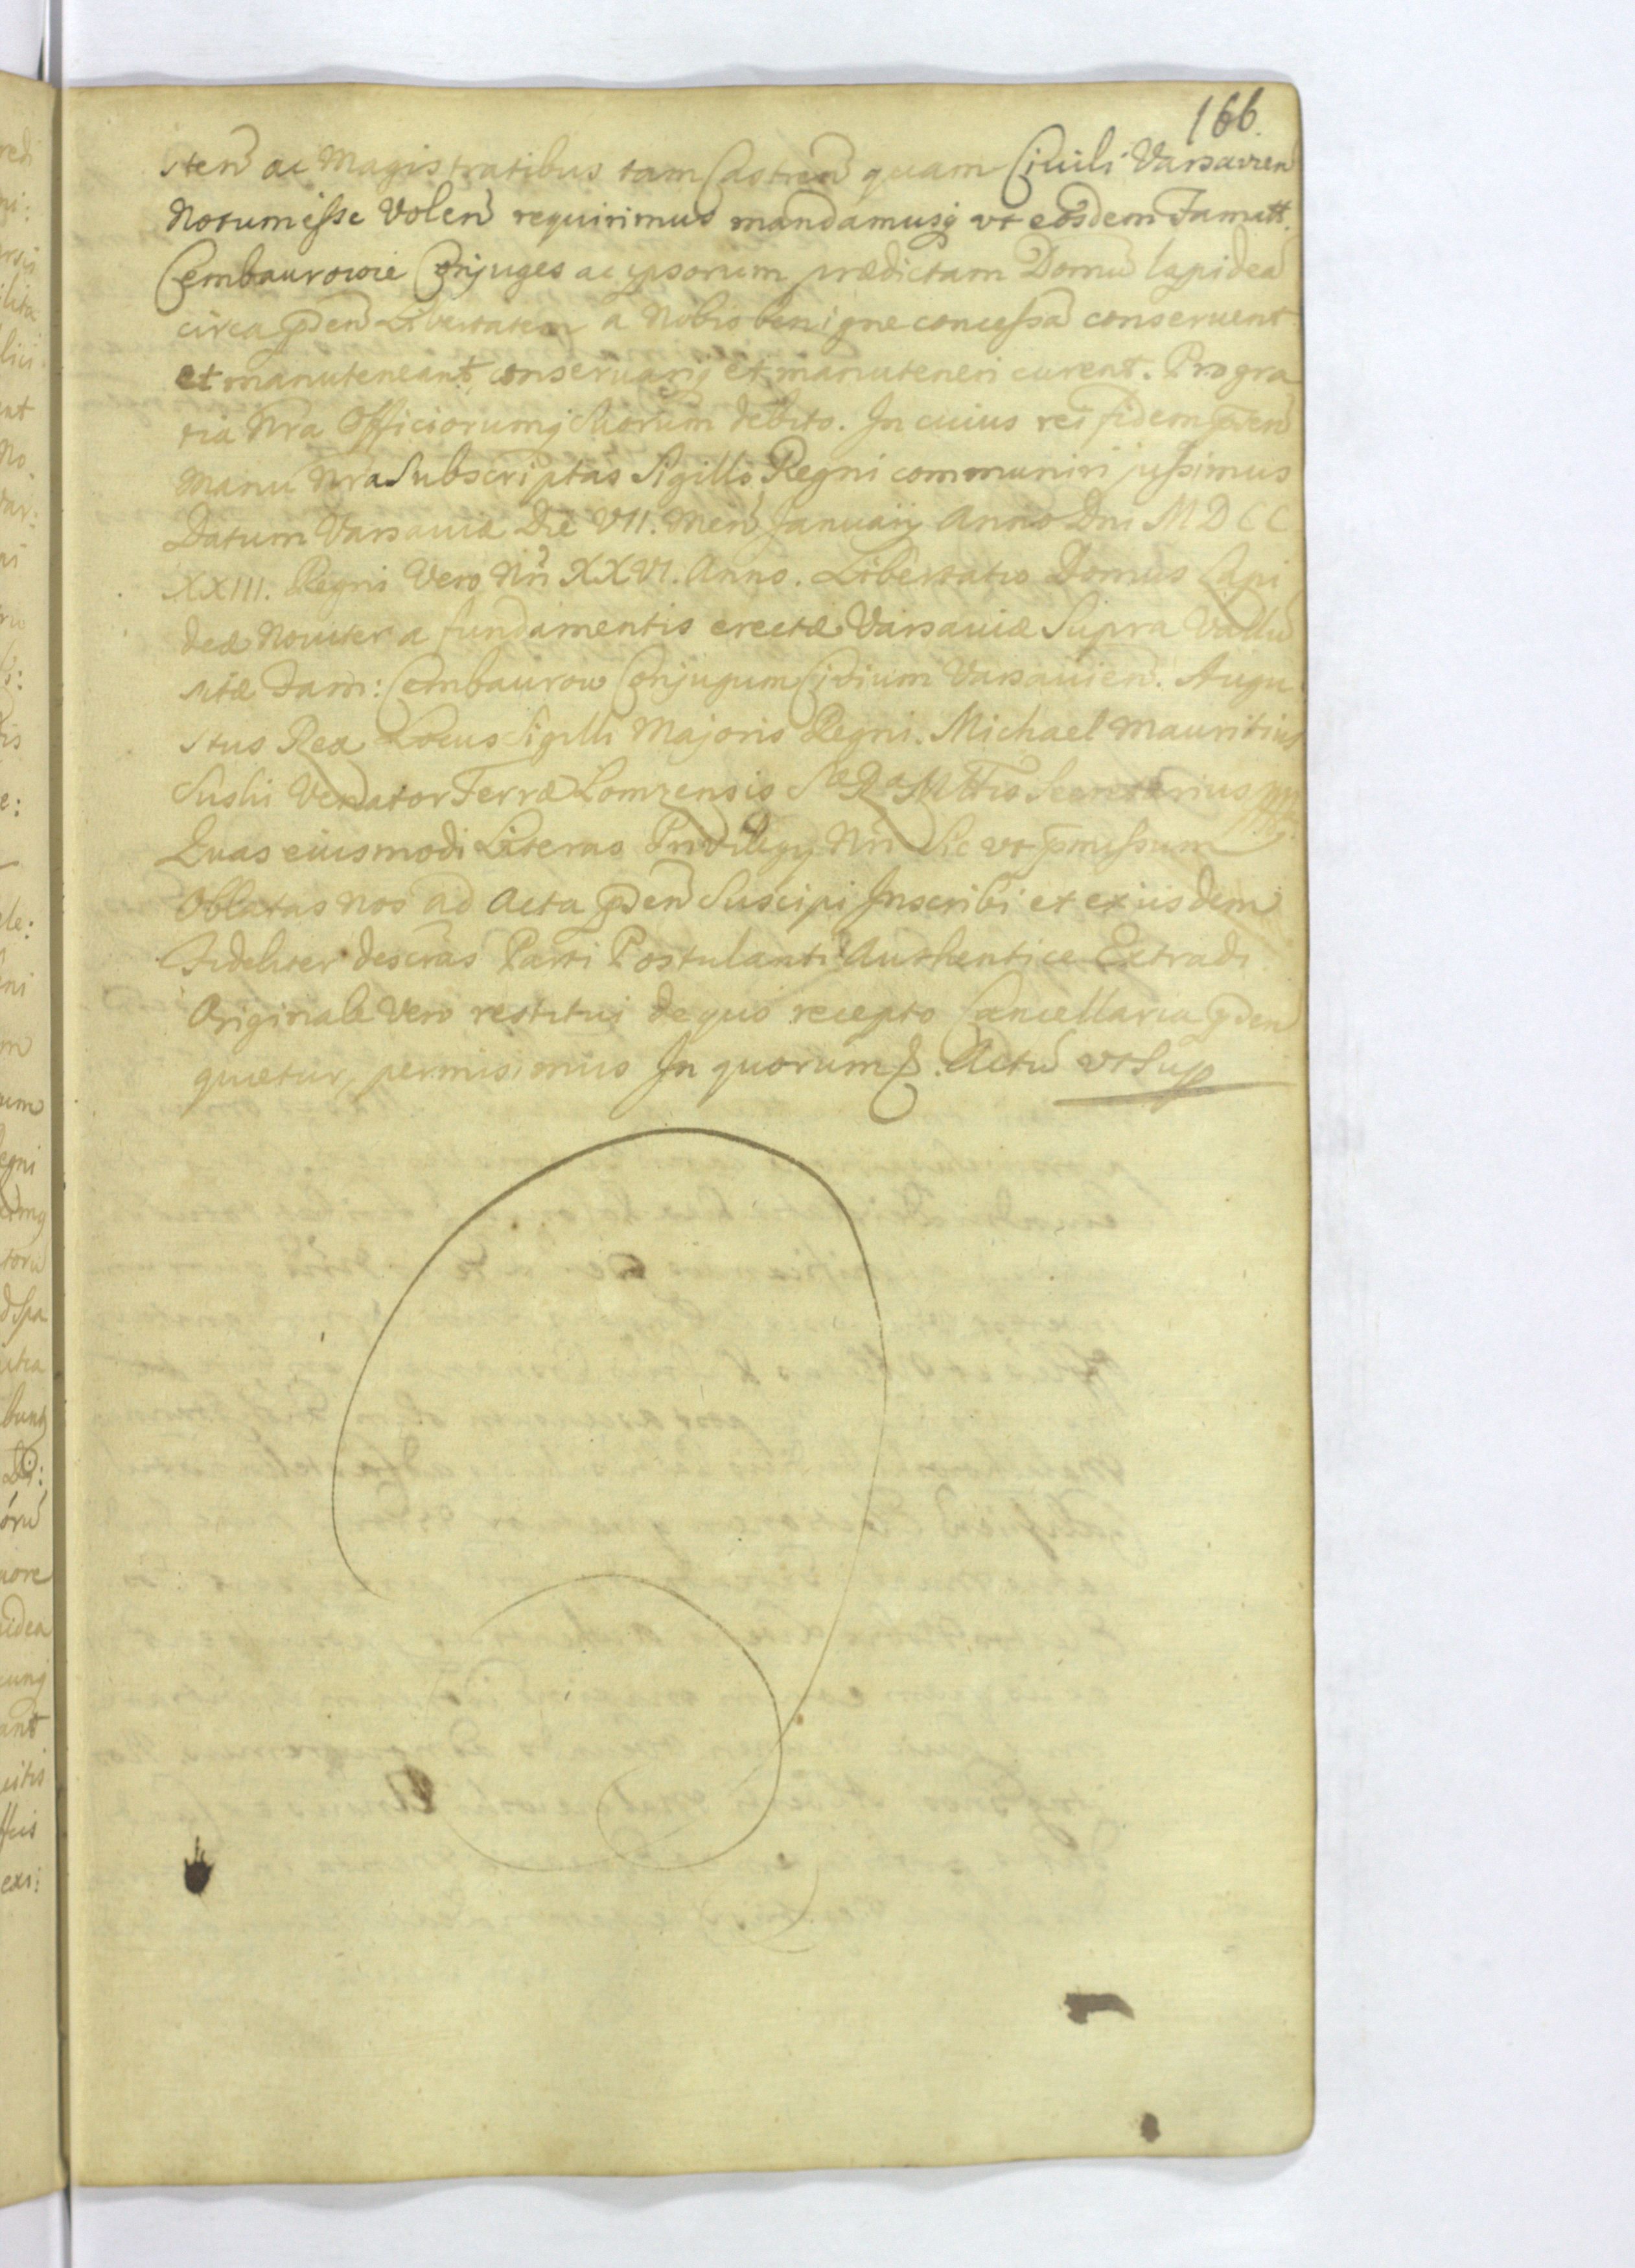 166.
sten ac Magistratibus tam Castren quam Ciuili Varsavien
Notum esse Volen requirimus mandamusq vt eosdem Famatt.
Cembaurowie Conjuges ac ipsorum prædictam Domu lapidea
circa pden Libertatem a Nobis benigne concessa conseruent
et manuteneant, conseruariq et manuteneri curent. Pro gra
tia Nra Officiorumq Suorum debito. In cuius rei fidem pden
Manu Nra Subscriptas Sigillo Regni communiri jussimus
Datum Varsaviæ Die VII. Men Januarij Anno Dni M D C C
XXIII. Regni Vero Nri XXVI. Anno. Libertatio Domus Lapi
deæ Nouiter a fundamentis erectæ Varsauiæ Supra Vallu
sitæ Fam: Cembaurow Conjugum Civium Varsauien. Augu
stus Rex Locus Sigilli Majoris Regni. Michael Mauritius
Suski Venator Terræ Lomzensis S R Mttis Secretarius mp
Quas eiusmodi Literas Privilegij Nri Sic vt pmissum
Oblatas Nos ad Acta pden Suscipi Inscribi et ex iisdem
Fideliter descras Parti Postulanti Authentice Extradi
Originale Vero restitui de quo recepto Cancellaria pden
quietur, permisimus In quorum &. Actu vt Sup